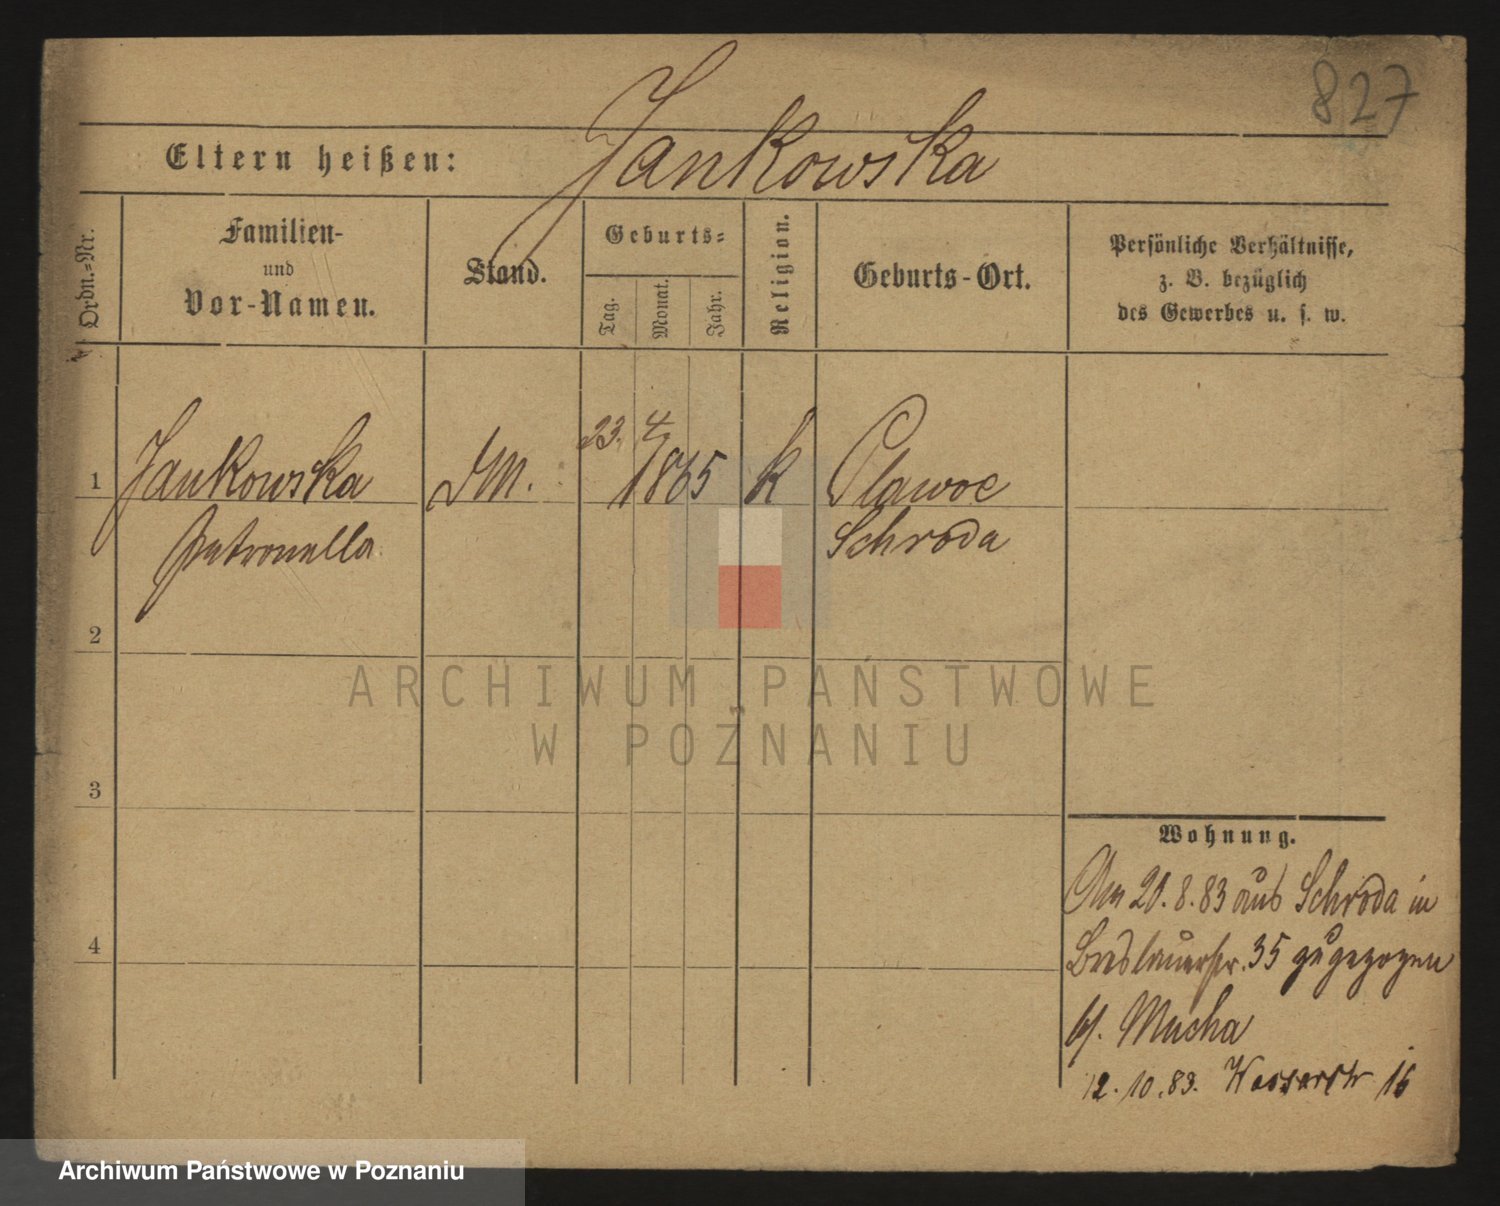 827
Jankowska
Eltern heißen:
Ordn.=Nr.
Familien-
und
Vor-Namen.
Stand.
Geburts=
Tag.
Monat.
Jahr.
Religion.
Geburts-Ort.
Persönliche Verhältnisse,
z. B. bezüglich
des Gewerbes u. s. w.
1 Jankowska DM. 23. 4 1865 k Plawce
Petronella Schroda
2
ARCHIWUM PAŃSTWOWE
W POZNANIU
3
Wohnung.
Am 20.8.83 aus Schroda in
4
Breslauerstr. 35 zugezogen
b/. Mucha
12.10.83. Wasserstr 16
Archiwum Państwowe w Poznaniu